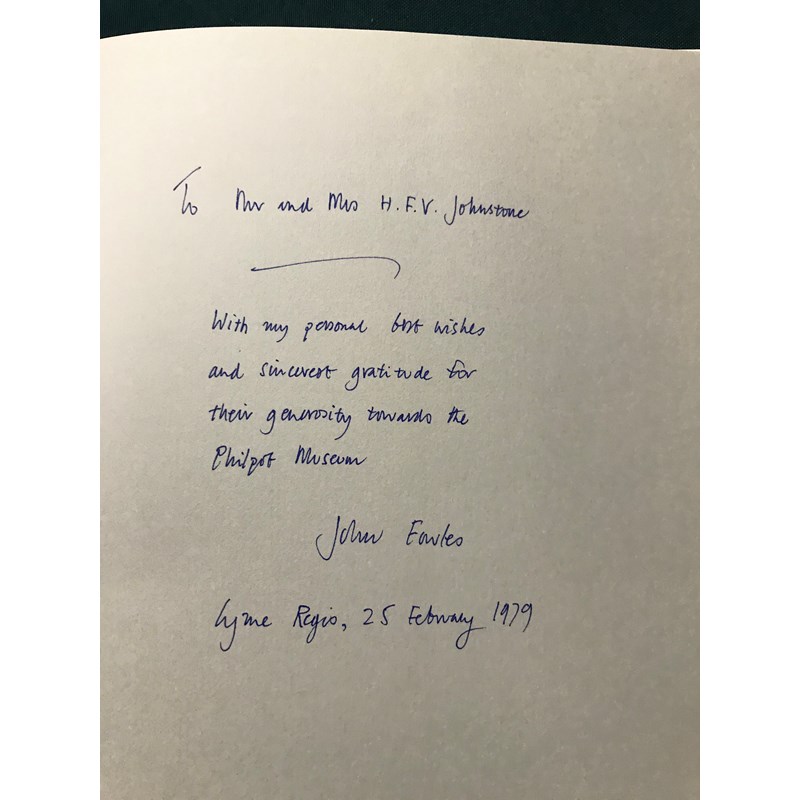 To Mr and Mrs H.F.V. Johnstone
With my personal best wishes
and sincerest gratitude for
their generosity towards the
Philpot Museum
John Fowles
Lyme Regis, 25 February 1979